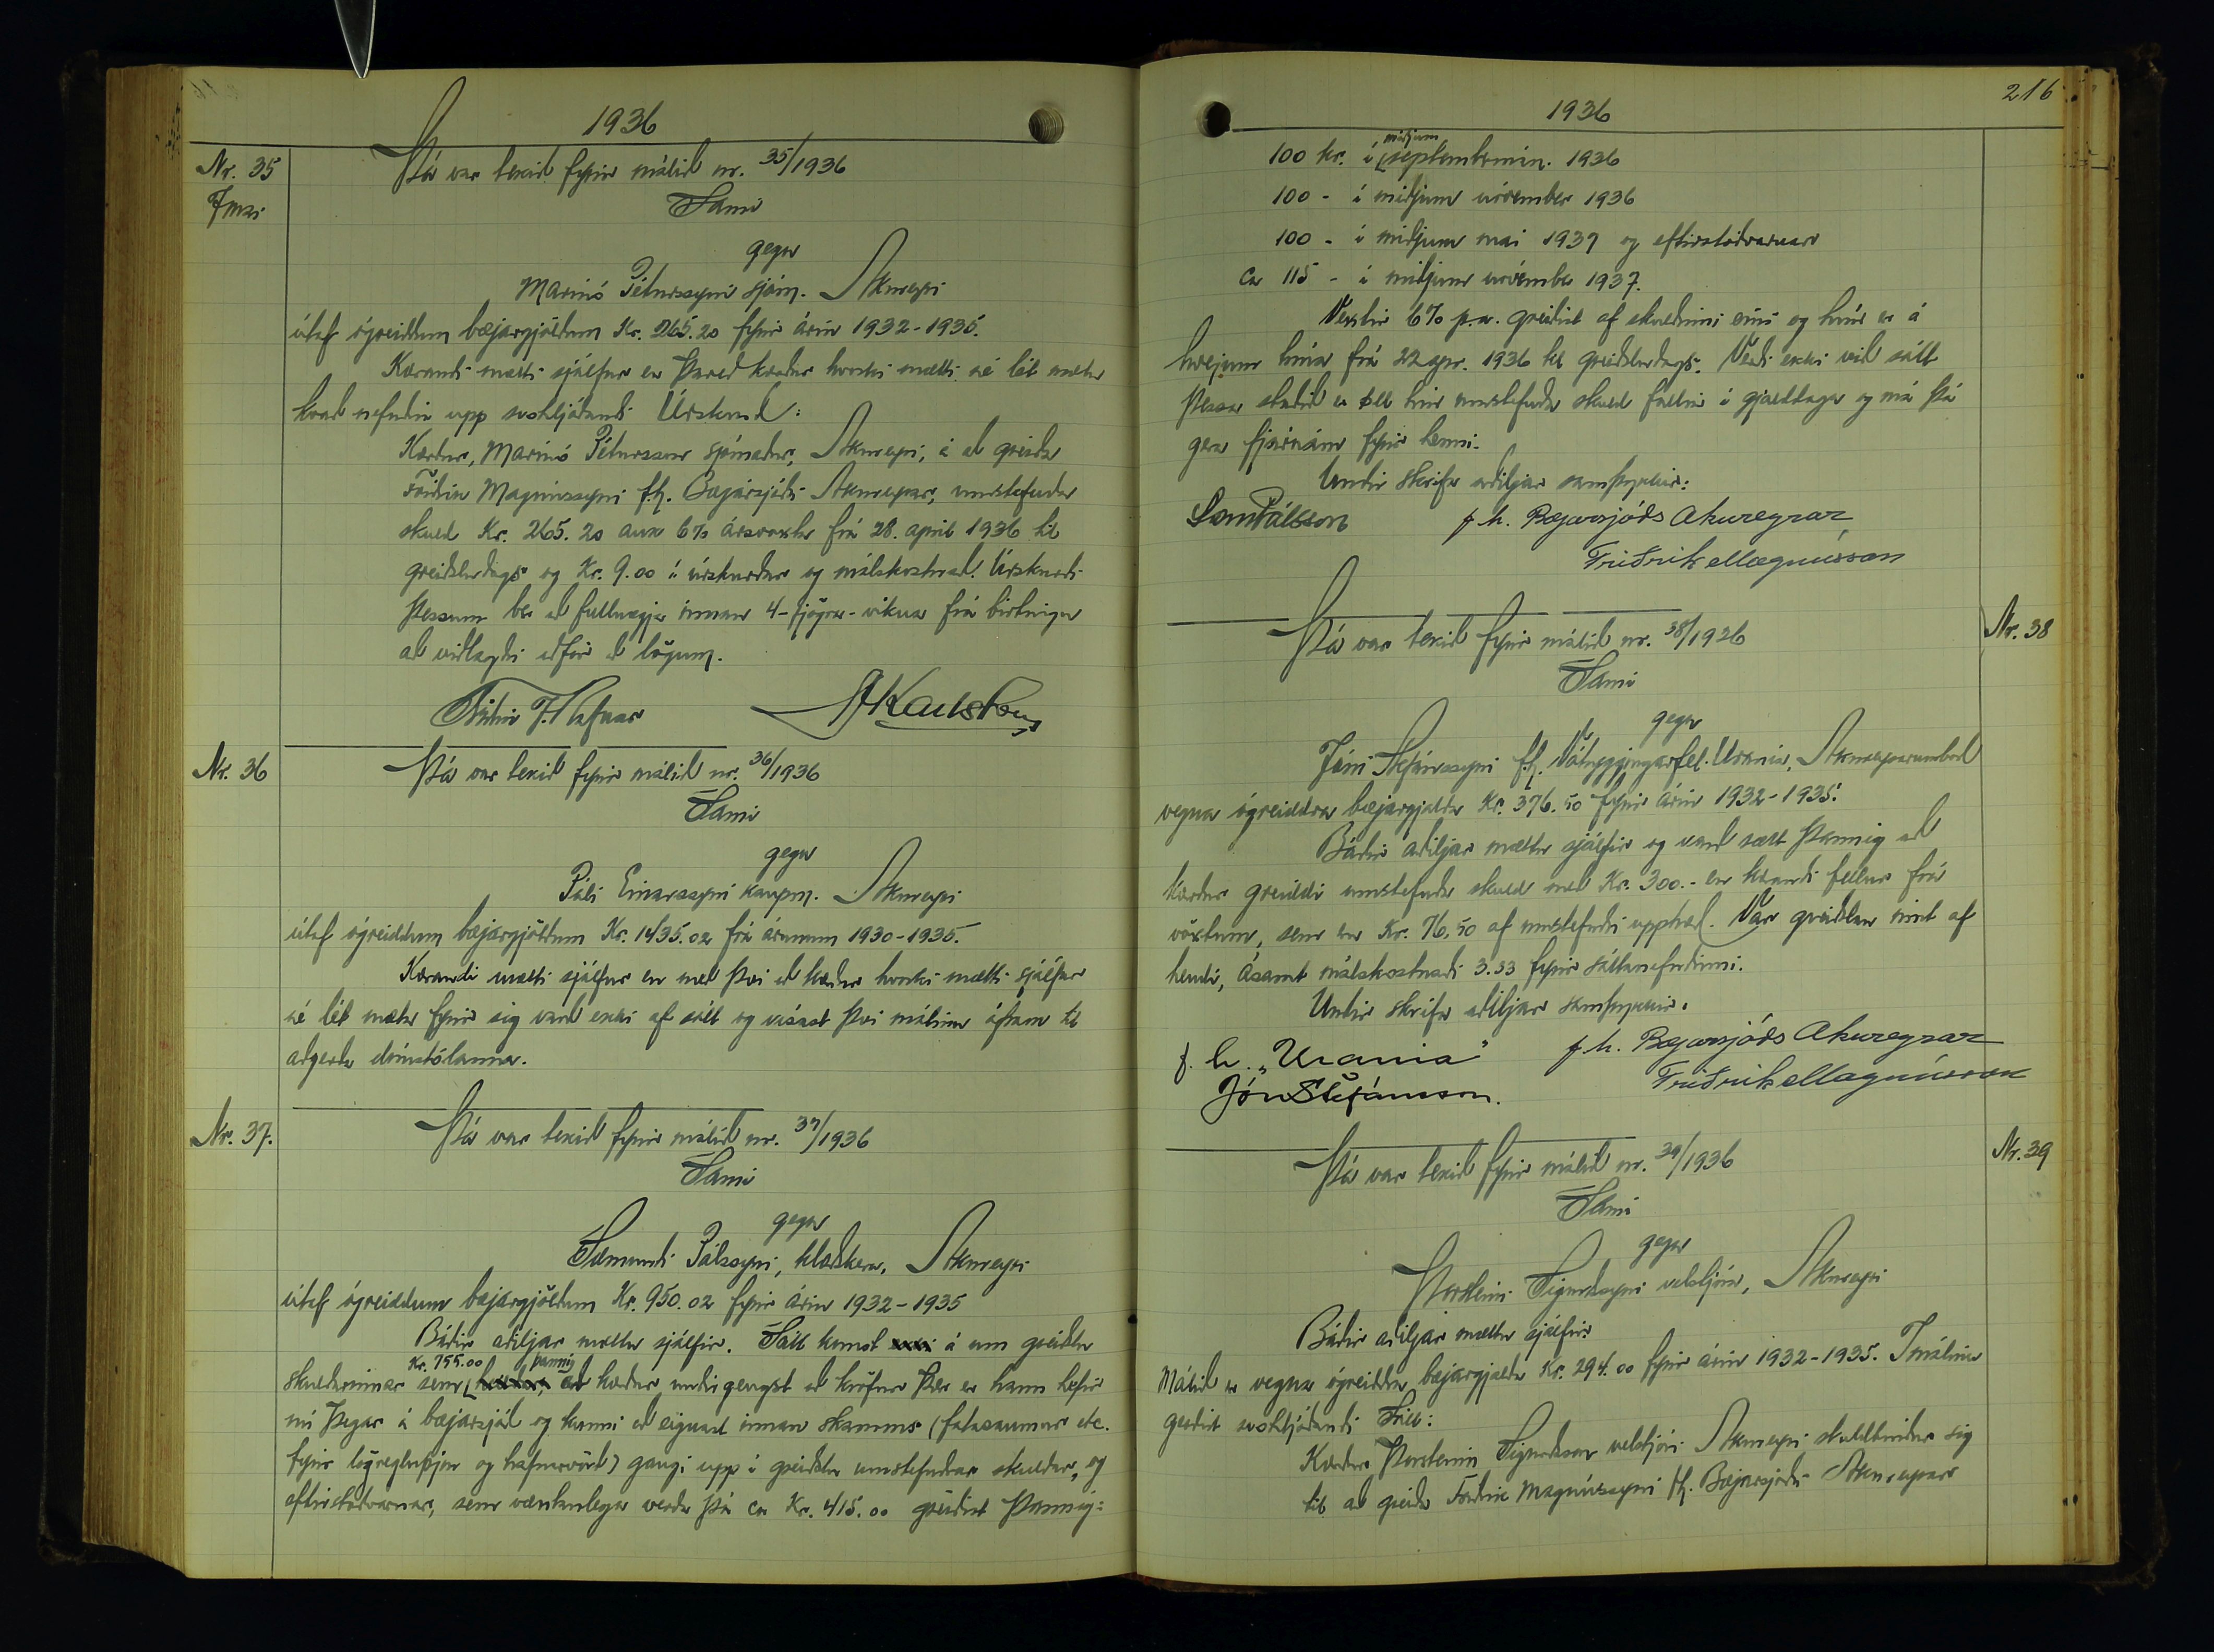 1936
Nr. 35
Þá var tekið fyrir málið nr. 35/1936
Sami
gegn
Marinó Péturssyni sjóm. Akureyri
útaf ógreiddum bæjargjöldum Kr. 265.20 fyrir árin 1932-1935.
Kærandi mætti sjálfur en þareð kærður hvorki mætti né lét mæta
kvað nefndin upp svohljóðandi Úrskurð:
Kærður, Marinó Pétursson sjómaður, Akureyri, á að greiða
Friðrik Magnússyni f.h. Bæjarsjóðs Akureyrar, umstefnda
skuld Kr. 265.20 auk 6% ársvaxta frá 28. apríl 1936 til
greiðsludags og Kr. 9.00 í úrskurðar og málskostnað. Úrskurði
þessum ber að fullnægja innan 4-fjögra-vikna frá birtingu
að viðlagðri aðför að lögum.
Nr. 36
Þá var tekið fyrir málið nr. 36/1936
Sami
gegn
Páli Einarssyni kaupm. Akureyri
útaf ógreiddum bæjargjöldum Kr. 1435.02 frá árunum 1930-1935.
Kærandi mætti sjálfur en með því að kærður hvorki mætti sjálfur
né lét mæta fyrir sig varð ekki af sátt og vísast því málinu áfram til
aðgerða dómstólanna.
Nr. 37.
Þá var tekið fyrir málið nr. 37/1936
Sami
gegn
Sæmundi Pálssyni, klæðskera, Akureyri
útaf ógreiddum bæjargjöldum Kr. 950.02 fyrir árin 1932-1935
Báðir aðiljar mættu sjálfir. Sátt komst á um greiðslu
Kr. 755.00 þannig
skuldarinnar sem að kærður undirgengst að kröfur þær er hann hefir
nú þegar á bæjarsjóð og kunni að eignast innan skamms (fatasaumur etc.
fyrir lögregluþjóna og hafnarvörð) gangi upp í greiðslu umstefndrar skuldar, og
eftirstöðvarnar, sem væntanlega verða þá ca Kr. 415.00 greiðist þannig:
216
1936
miðjum
100 kr. í septembermán. 1936
100 - í miðjum nóvember 1936
100 - í miðjum maí 1937 og eftirstöðvarnar
ca 115 - í miðjum nóvember 1937.
Vextir 6% p.a. greiðist af skuldinni eins og hún er á
hverjum tíma frá 22 apr. 1936 til greiðsludags. Verði ekki við sátt
þessa staðið er öll hin umstefnda skuld fallin í gjalddaga og má þá
gera fjárnám fyrir henni.
Undir skrifa aðiljar samþykkir:
Sæm Pálsson
f. h. Bæjarsjóðs Akureyrar
Friðrik Magnússon
Nr. 38
Þá var tekið fyrir málið nr. 38/1926
Sami
gegn
Jóni Stefánssyni f.h. Vátryggingarfél. Urania, Akureyrarumboð
vegna ógreiddra bæjargjalda Kr. 376.50 fyrir árin 1932-1935.
Báðir aðiljar mættu sjálfir og varð sátt þannig að
kærður greiddi umstefnda skuld með Kr. 300.- en kærandi fellur frá
vöxtum, sem er Kr. 76.50 af umstefndri upphæð. Var greiðslan innt af
hendi, ásamt málskostnaði 3.33 fyrir sáttanefndinni.
Undir skrifa aðiljar samþykkir.
f. h. „Urania"
Jón Stefánsson.
f. h. Bæjarsjóðs Akureyrar
Friðrik Magnússon
Nr. 39
Þá var tekið fyrir málið nr. 39/1936
Sami
gegn
Þorsteini Sigurðssyni vélstjóra, Akureyri
Báðir aðiljar mættu sjálfir
Málið er vegna ógreiddra bæjargjalda Kr. 294.00 fyrir árin 1932-1935. Í málinu
gerðist svohljóðandi Sátt:
Kærður Þorsteinn Sigurðsson vélstjóri Akureyri skuldbindur sig
til að greiða Friðrik Magnússyni f.h. Bæjarsjóðs Akureyrar